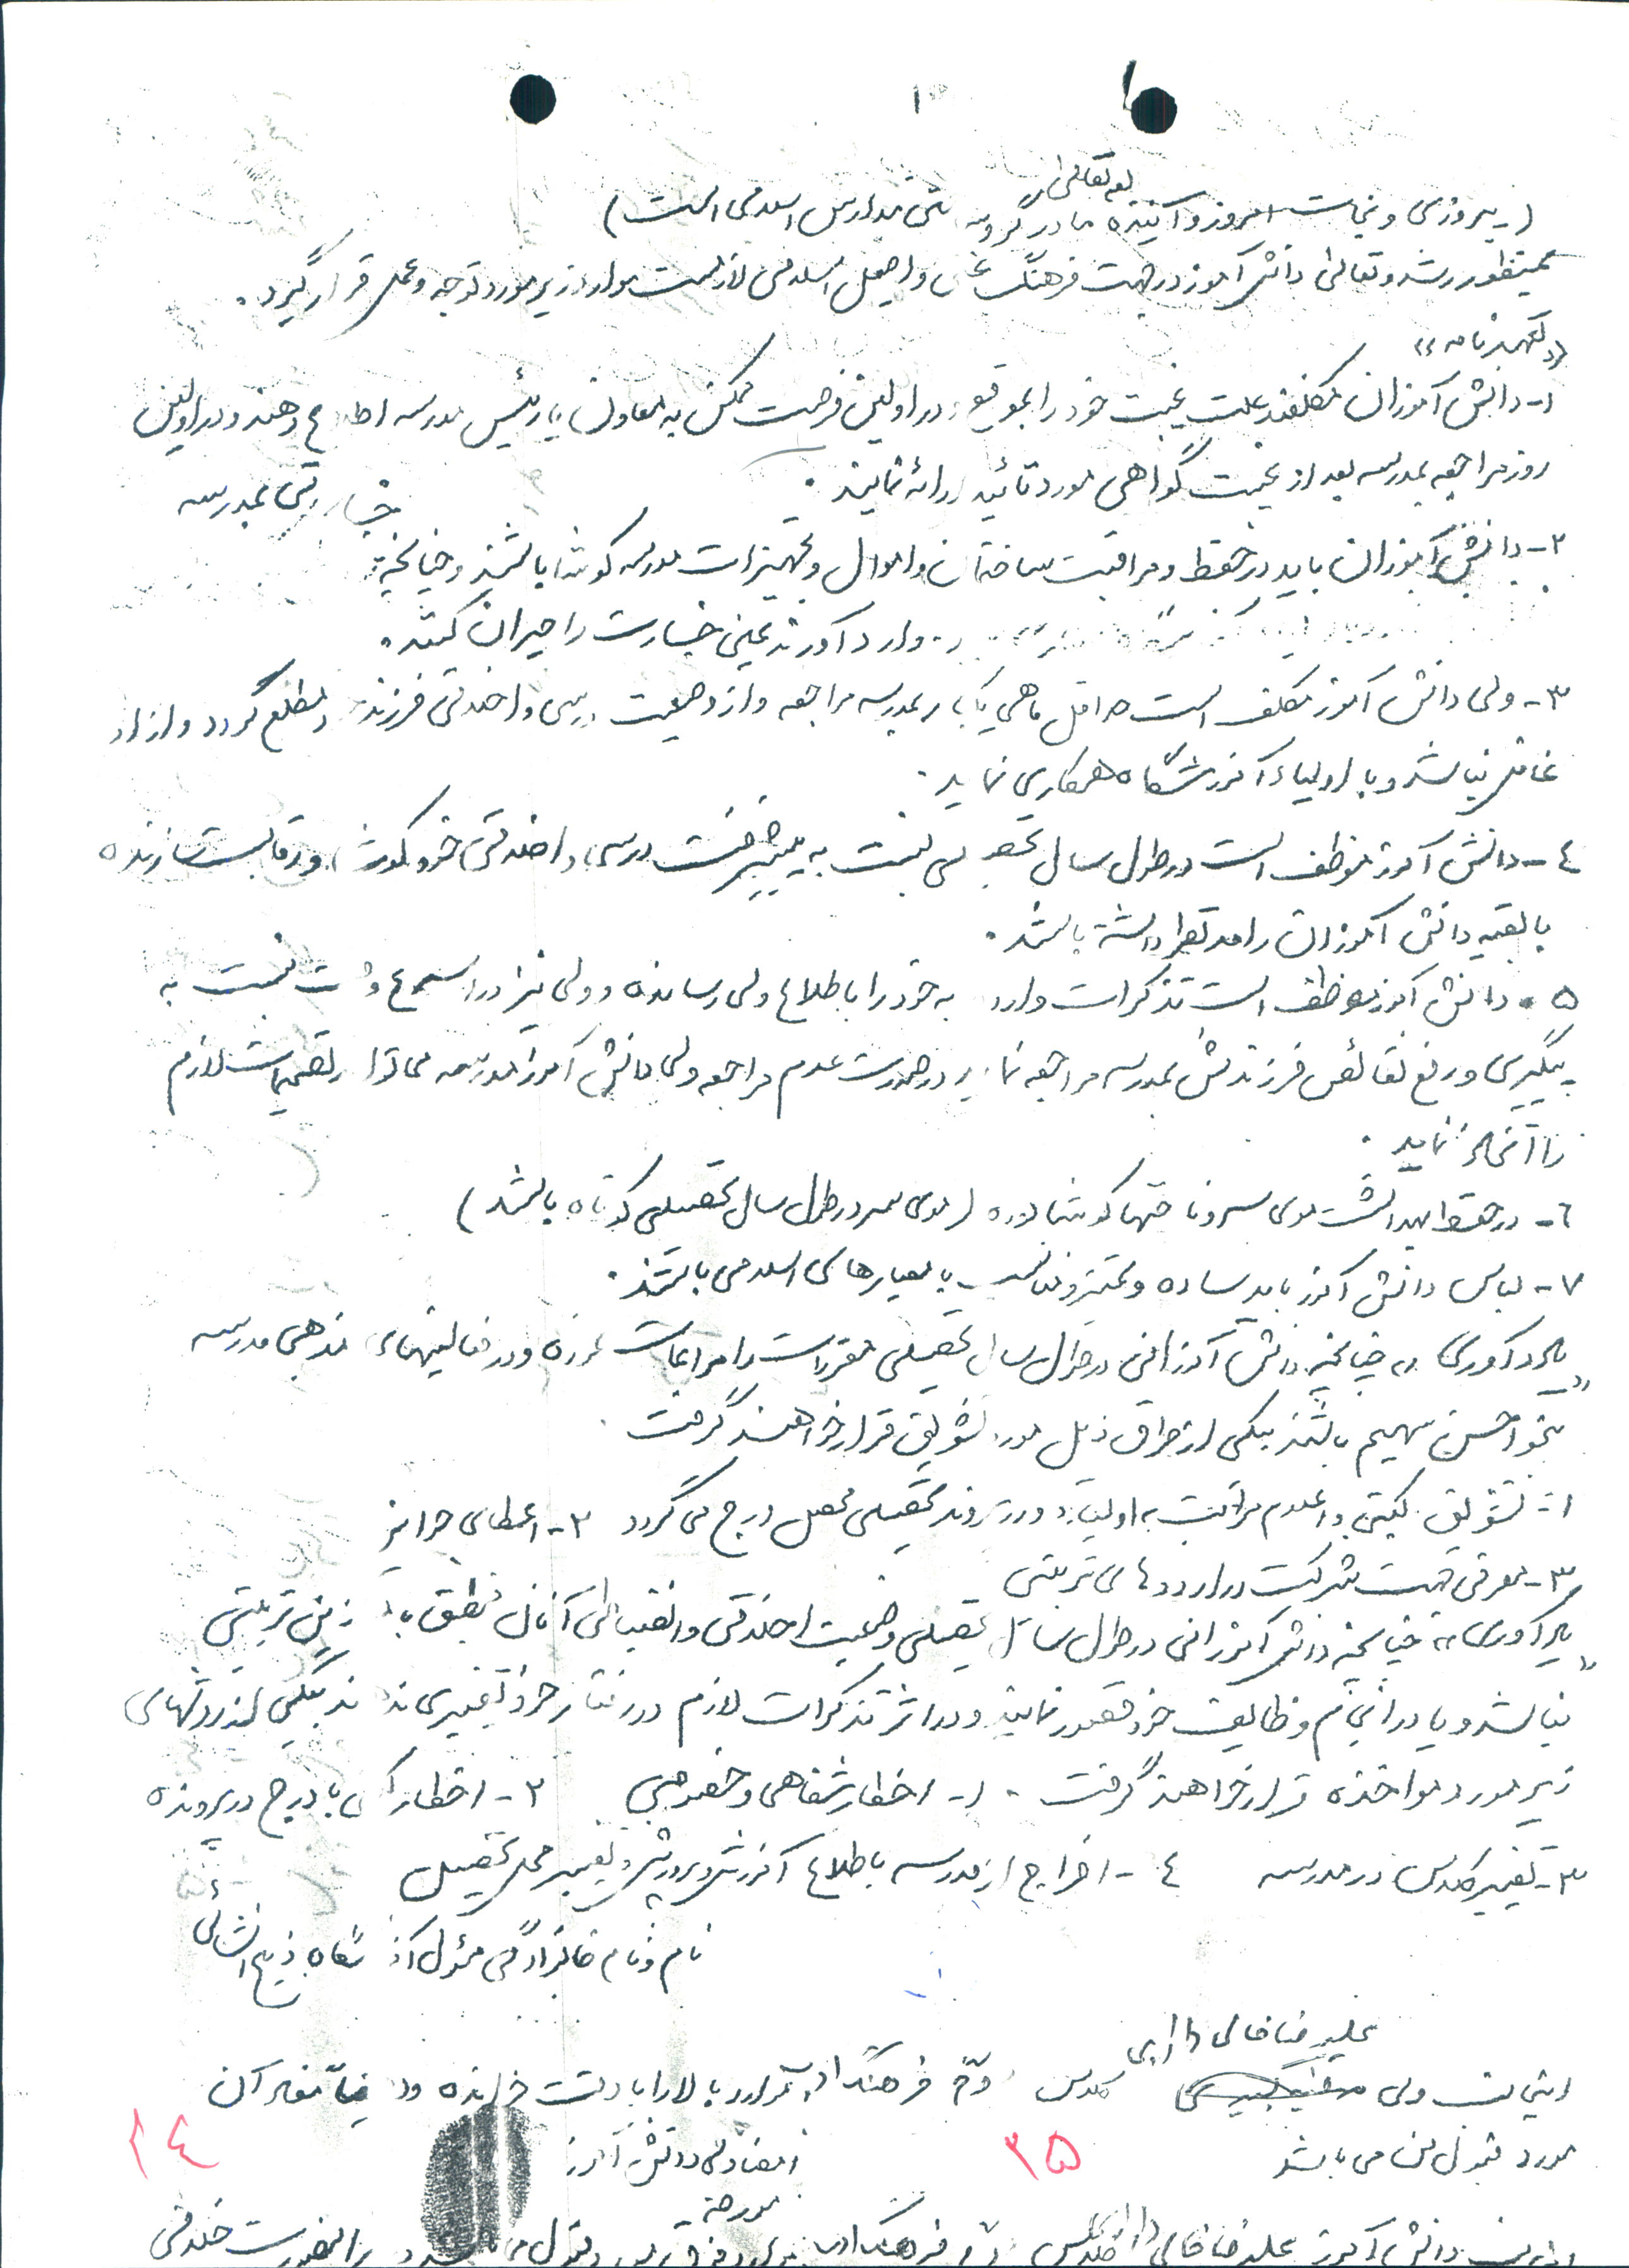 بسمه تعالی
(پیروزی و نجات امروز و آینده ما در گرو تداوم مدارس اسلامی است)
بمنظور رشد و تعالی دانش آموز در جهت فرهنگ غنی و اصیل اسلامی لازمست موارد زیر مورد توجه و عمل قرار گیرد.
«تعهدنامه»
۱- دانش آموزان مکلفند علت غیبت خود را بموقع و در اولین فرصت ممکن به معاون یا رئیس مدرسه اطلاع دهند و در اولین
روز مراجعه بمدرسه بعد از غیبت گواهی مورد تائید ارائه نمایند.
خسارتی بمدرسه
۲- دانش آموزان باید در حفظ و مراقبت ساختمان و اموال و تجهیزات مدرسه کوشا باشند و چنانچه
وارد آورند عینی خسارت را جبران کنند.
۳- ولی دانش آموز مکلف است حداقل ماهی یکبار بمدرسه مراجعه و از وضعیت درسی و اخلاقی فرزند خود مطلع گردد و از او
غافل نباشد و با اولیاء آموزشگاه همکاری نماید.
٤- دانش آموز موظف است در طول سال تحصیلی نسبت به پیشرفت درسی و اخلاقی خود کوشا و رقابت سازنده
با بقیه دانش آموزان را مد نظر داشته باشد.
۵- دانش آموز موظف است تذکرات وارده به خود را باطلاع ولی رسانده و ولی نیز در اسرع وقت نسبت به
پیگیری و رفع نقائص فرزندش بمدرسه مراجعه نماید در صورت عدم مراجعه ولی دانش آموز مدرسه می تواند تصمیمات لازم
را اتخاذ نماید.
٦- در حفظ بهداشت موی سر و ناخنها کوشا بوده (موی سر در طول سال تحصیلی کوتاه باشد)
۷- لباس دانش آموز باید ساده و تمیز و مناسب با معیارهای اسلامی باشند.
«یادآوری» چنانچه دانش آموزانی در طول سال تحصیلی مقررات را مراعات نموده و در فعالیتهای مذهبی مدرسه
بنحو احسن سهیم باشند بیکی از طرق ذیل مورد تشویق قرار خواهند گرفت.
۱- تشویق کتبی و اعلام مراتب به اولیاء و در پرونده تحصیلی محصل درج می گردد ۲- اعطای جوایز
۳- معرفی جهت شرکت در اردوهای تربیتی
«یادآوری» چنانچه دانش آموزانی در طول سال تحصیلی وضعیت اخلاقی و انضباطی آنان منطبق با موازین تربیتی
نباشد و یا در انجام وظایف خود قصور نمایند و در اثر تذکرات لازم در رفتار خود تغییری ندهند بیکی از روشهای
زیر مورد مواخذه قرار خواهند گرفت. ۱- اخطار شفاهی و خصوصی ۲- اخطار کتبی با درج در پرونده
۳- تغییر کلاس در مدرسه ٤- اخراج از مدرسه با اطلاع آموزش و پرورش و تغییر محل تحصیل
نام و نام خانوادگی مسئول آموزشگاه ذبیح
علیرضا خالی دارابی
اینجانب ولی کلاس دوم فرهنگ ادب موارد بالا را با دقت خوانده و مفاد آن
مورد قبول من می باشد
۳۵
امضاء ولی دانش آموز
۲٤
دانش آموز علیرضا خالی کلاس فرهنگ ادب